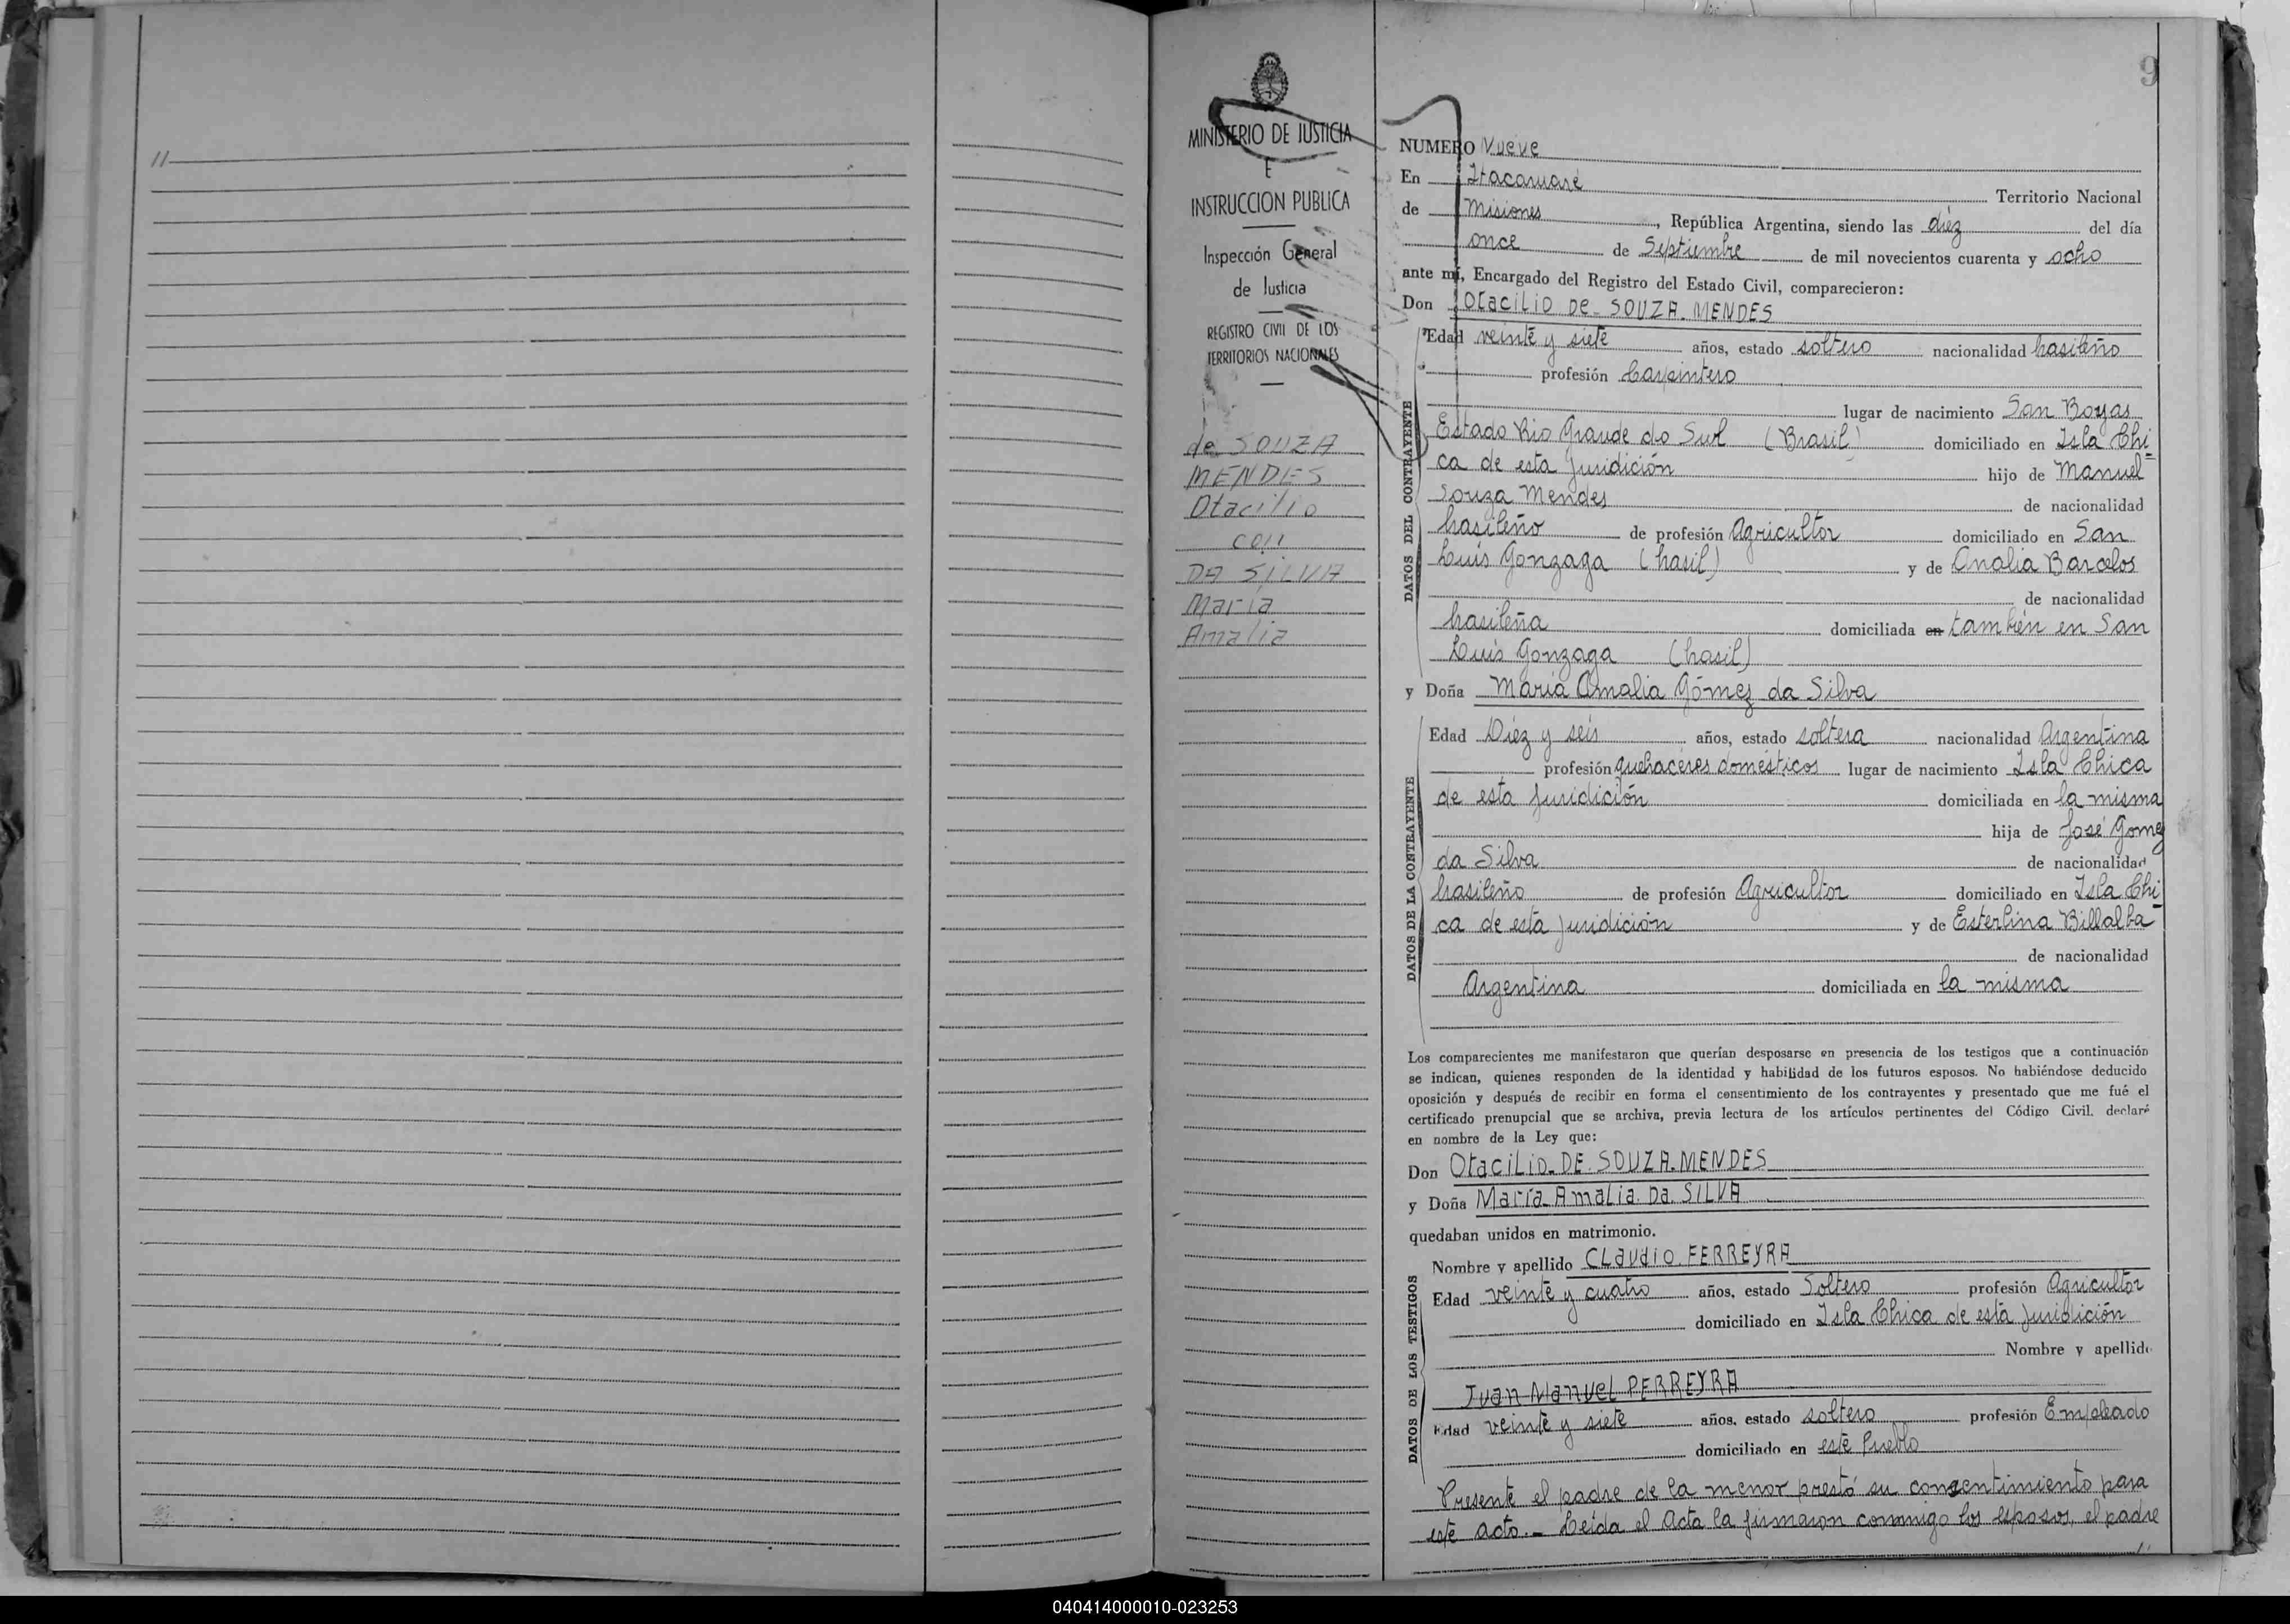 //
9
MINISTERIO DE JUSTICIA
E
INSTRUCCION PUBLICA
Inspección General
de Justicia
REGISTRO CIVIL DE LOS
TERRITORIOS NACIONALES
de SOUZA
MENDES
Otacilio
con
DA SILVA
María
Amalia
NUMERO Nueve
En Itacaruaré Territorio Nacional
de Misiones, República Argentina, siendo las diéz del día
once de Septiembre de mil novecientos cuarenta y ocho
ante mí, Encargado del Registro del Estado Civil, comparecieron:
Don Otacilio DE SOUZA MENDES
DATOS DEL CONTRAYENTE
Edad veinte y siete años, estado soltero nacionalidad brasileño
profesión Carpintero
lugar de nacimiento San Boyas
Estado Rio Grande do Sul (Brasil) domiciliado en Isla Chi=
ca de esta Juridición hijo de Manuel
Souza Mendes de nacionalidad
brasileño de profesión Agricultor domiciliado en San
Luis Gonzaga (brasil) y de Analia Barcelos
de nacionalidad
brasileña domiciliada en también en San
Luis Gonzaga (brasil)
y Doña María Amalia Gómez da Silva
DATOS DE LA CONTRAYENTE
Edad Diez y seis años, estado soltera nacionalidad Argentina
profesión quehacéres domésticos lugar de nacimiento Isla Chica
de esta Juridición domiciliada en la misma
hija de José Gomez
da Silva de nacionalidad
brasileño de profesión Agricultor domiciliado en Isla Chi-
ca de esta Juridición y de Esterlina Billalba
de nacionalidad
Argentina domiciliada en la misma
Los comparecientes me manifestaron que querían desposarse en presencia de los testigos que a continuación
se indican, quienes responden de la identidad y habilidad de los futuros esposos. No habiéndose deducido
oposición y después de recibir en forma el consentimiento de los contrayentes y presentado que me fué el
certificado prenupcial que se archiva, previa lectura de los artículos pertinentes del Código Civil, declaré
en nombre de la Ley que:
Don Otacilio DE SOUZA MENDES
y Doña María Amalia Da SILVA
quedaban unidos en matrimonio.
DATOS DE LOS TESTIGOS
Nombre y apellido Claudio FERREYRA
Edad veinte y cuatro años, estado Soltero profesión Agricultor
domiciliado en Isla Chica de esta Juridición
Nombre y apellido
Juan Manuel PERREYRA
Edad veinte y siete años, estado soltero profesión Empleado
domiciliado en este Pueblo
Presente el padre de la menor prestó su consentimiento para
este acto.- Leída el Acta la firmaron conmigo los esposos, el padre
//
040414000010-023253